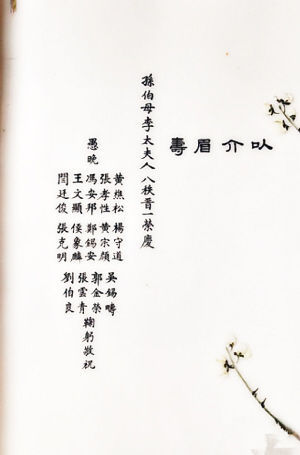 以介眉壽
孫伯母李太夫人八秩晉一榮慶
愚晚
黃樵松 楊守道
張孝性 黃宗顏
馮安邦 鄭錫安
王文顯 侯象麟
閻廷俊 張克明
吳錫疇
郭金榮
張雲青
劉伯良
鞠躬敬祝